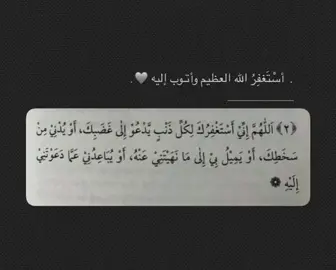 . أسْتَغفِرُ الله العظيم وأتـوب إليه 🤍 .
﴿٢﴾ اَللّٰهُمَّ إِنِّيْ أَسْتَغْفِرُكَ لِكُلِّ ذَنْبٍ يَّدْعُوْ إِلٰى غَضَبِكَ، أَوْ يُدْنِيْ مِنْ
سَخَطِكَ، أَوْ يَمِيْلُ بِيْ إِلٰى مَا نَهَيْتَنِيْ عَنْهُ، أَوْ يُبَاعِدُنِيْ عَمَّا دَعَوْتَنِيْ
إِلَيْهِ